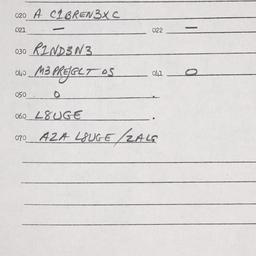 020 A C1BREN3XC
021 — 022 —
030 R1ND3N3
040 M3PREJGLT OS 041 O
050 O .
060 L8UGE .
070 A2A L8UGE/2ALG